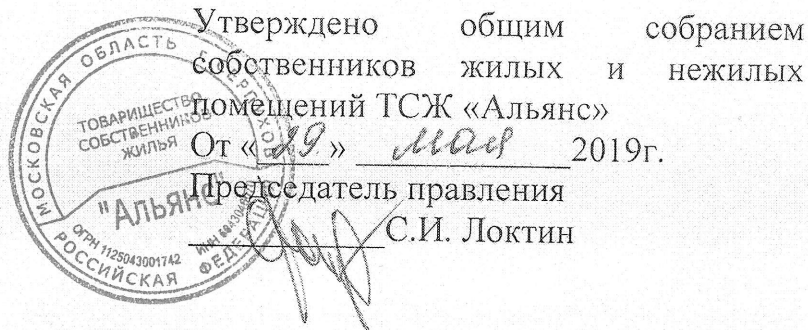 Утверждено общим собранием
собственников жилых и нежилых
помещений ТСЖ «Альянс»
От «29» мая 2019г.
Председатель правления
С.И. Локтин
МОСКОВСКАЯ ОБЛАСТЬ Г. СЕРПУХОВ
ТОВАРИЩЕСТВО
СОБСТВЕННИКОВ
ЖИЛЬЯ
"АЛЬЯНС"
ОГРН 1125043001742
ИНН
РОССИЙСКАЯ ФЕДЕРАЦИЯ